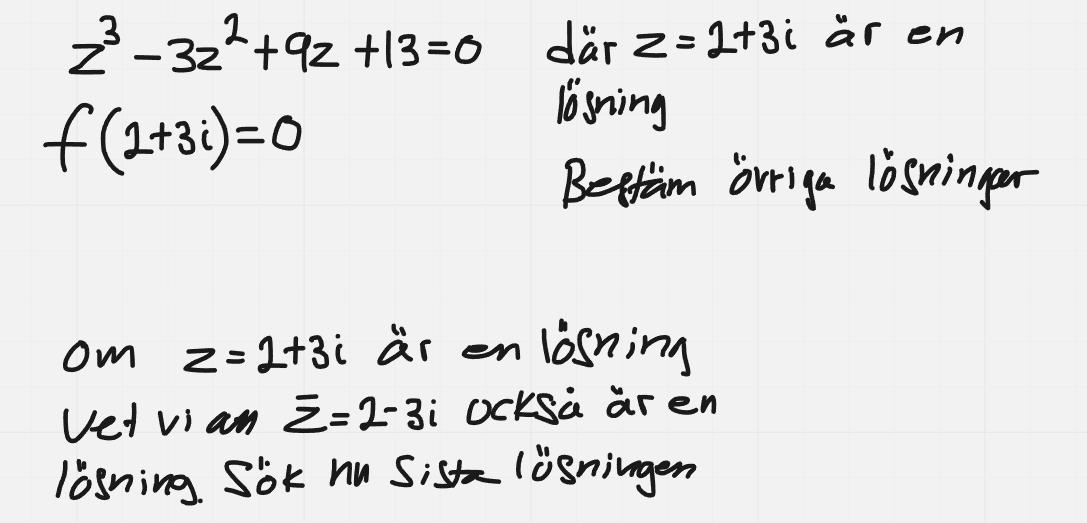 z³ - 3z² + 9z + 13 = 0 där z = 2+3i är en
lösning
f(2+3i) = 0
Bestäm övriga lösningar
om z = 2+3i är en lösning
vet vi an z̅ = 2-3i också är en
lösning. Sök nu sista lösningen